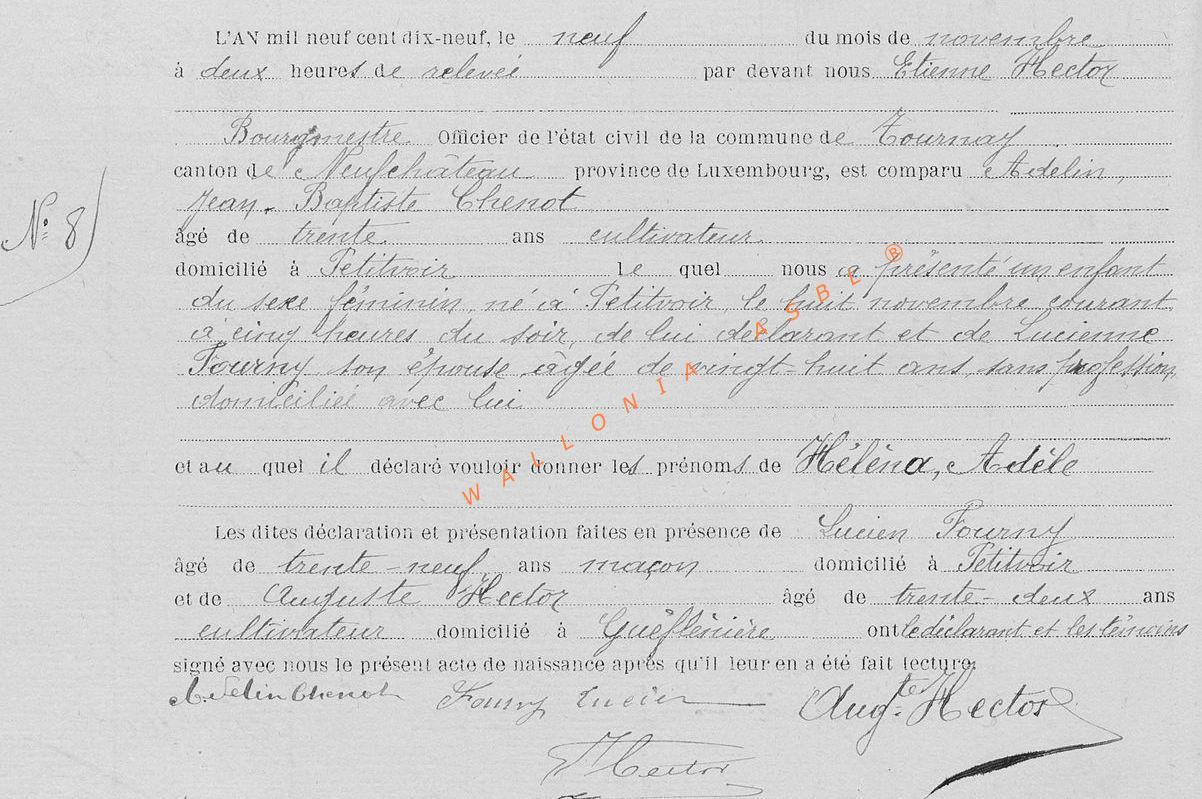 L'AN mil neuf cent dix-neuf, le neuf du mois de novembre
à deux heures de relevée par devant nous Etienne Hector
Bourgmestre Officier de l'état civil de la commune de Tournay
canton de Neufchâteau province de Luxembourg, est comparu Adelin,
Jean-Baptiste Chenot
N° 8
âgé de trente ans cultivateur
domicilié à Petitvoir Le quel nous a présenté un enfant
du sexe féminin, né à Petitvoir, le huit novembre courant
à cinq heures du soir, de lui déclarant et de Lucienne
Fourny son épouse âgée de vingt-huit ans, sans profession,
domiciliée avec lui
et au quel il déclaré vouloir donner les prénoms de Héléna, Adèle
Les dites déclaration et présentation faites en présence de Lucien Fourny
âgé de trente-neuf ans maçon domicilié à Petitvoir
et de Auguste Hector âgé de trente-deux ans
cultivateur domicilié à ont le déclarant et les témoins
signé avec nous le présent acte de naissance après qu'il leur en a été fait lecture.
A. Delin Chenot Fourny Lucien Aug.te Hector
Hector
WALLONIA ASBL ®